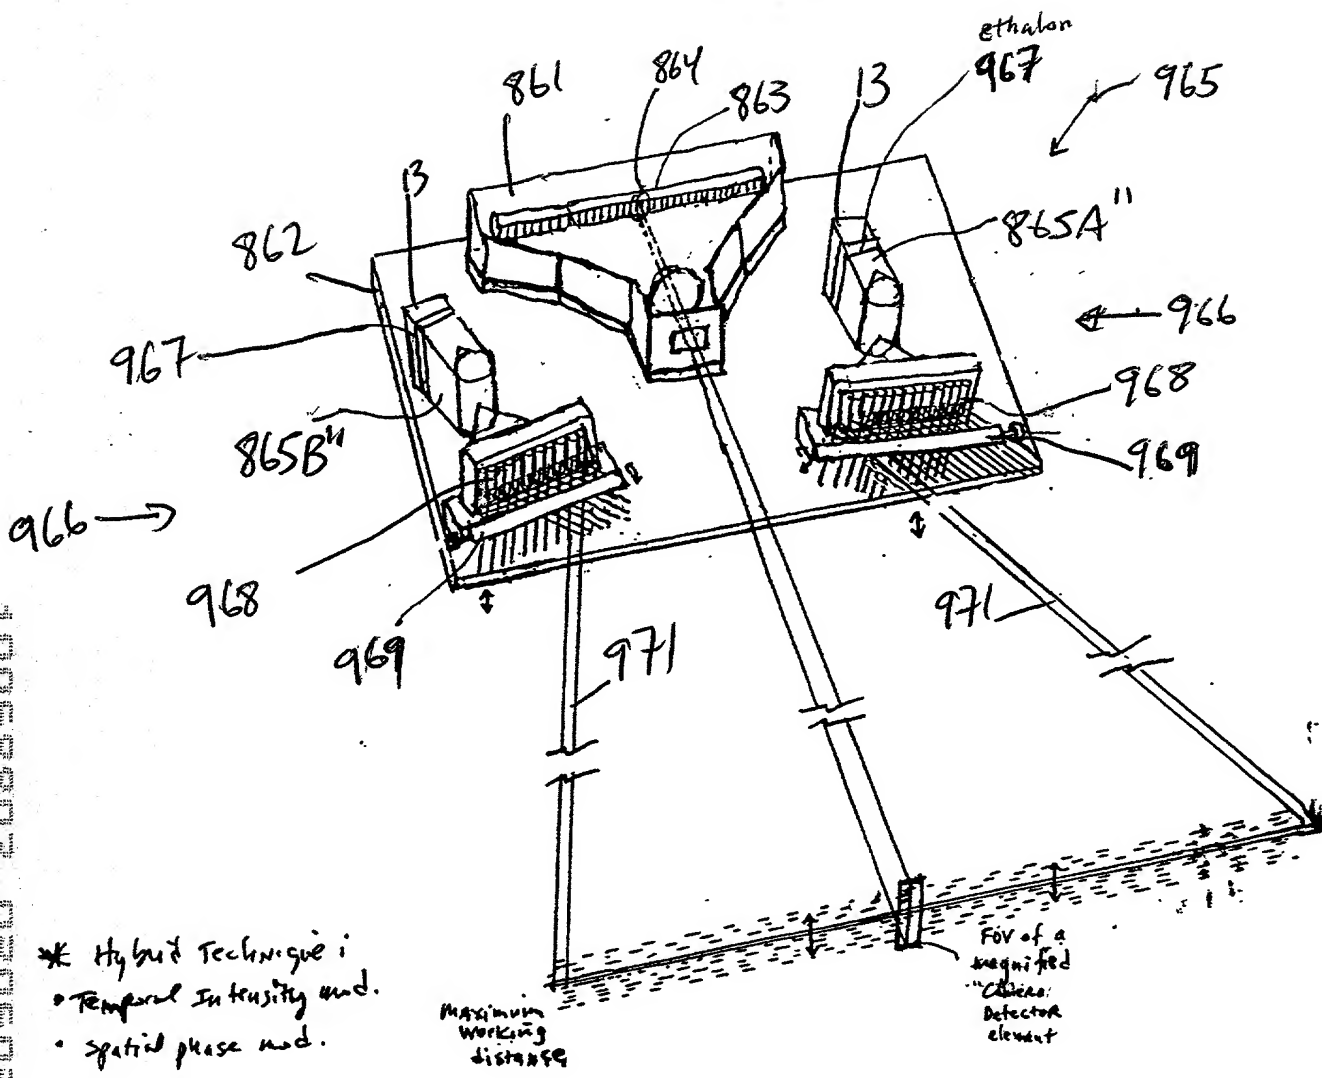 ethalon
861
864
863
13
967
965
13
862
865A"
967
966
968
865B"
969
966
968
969
971
971
* Hybrid Technique:
• Temporal Intensity mod.
• Spatial phase mod.
Maximum
Working
distance
FOV of a
magnified
Detector
element